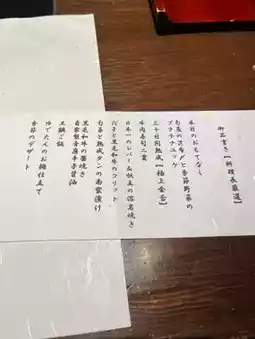 御品書き【料理長厳選】
本日のおもてなし
旬菜の昆布〆と季節野菜の
プラチナユッケ
三十日間熟成【極上金舌】
牛肉寿司二貫
日本一のレバー＆帆立の溶岩焼き
穴子と黒毛和牛のフリット
旬菜と熟成タンの南蛮漬け
黒毛和牛の藁焼き
自家製青唐辛子醤油
土鍋ご飯
ゆでたんのお椀仕立て
季節のデザート